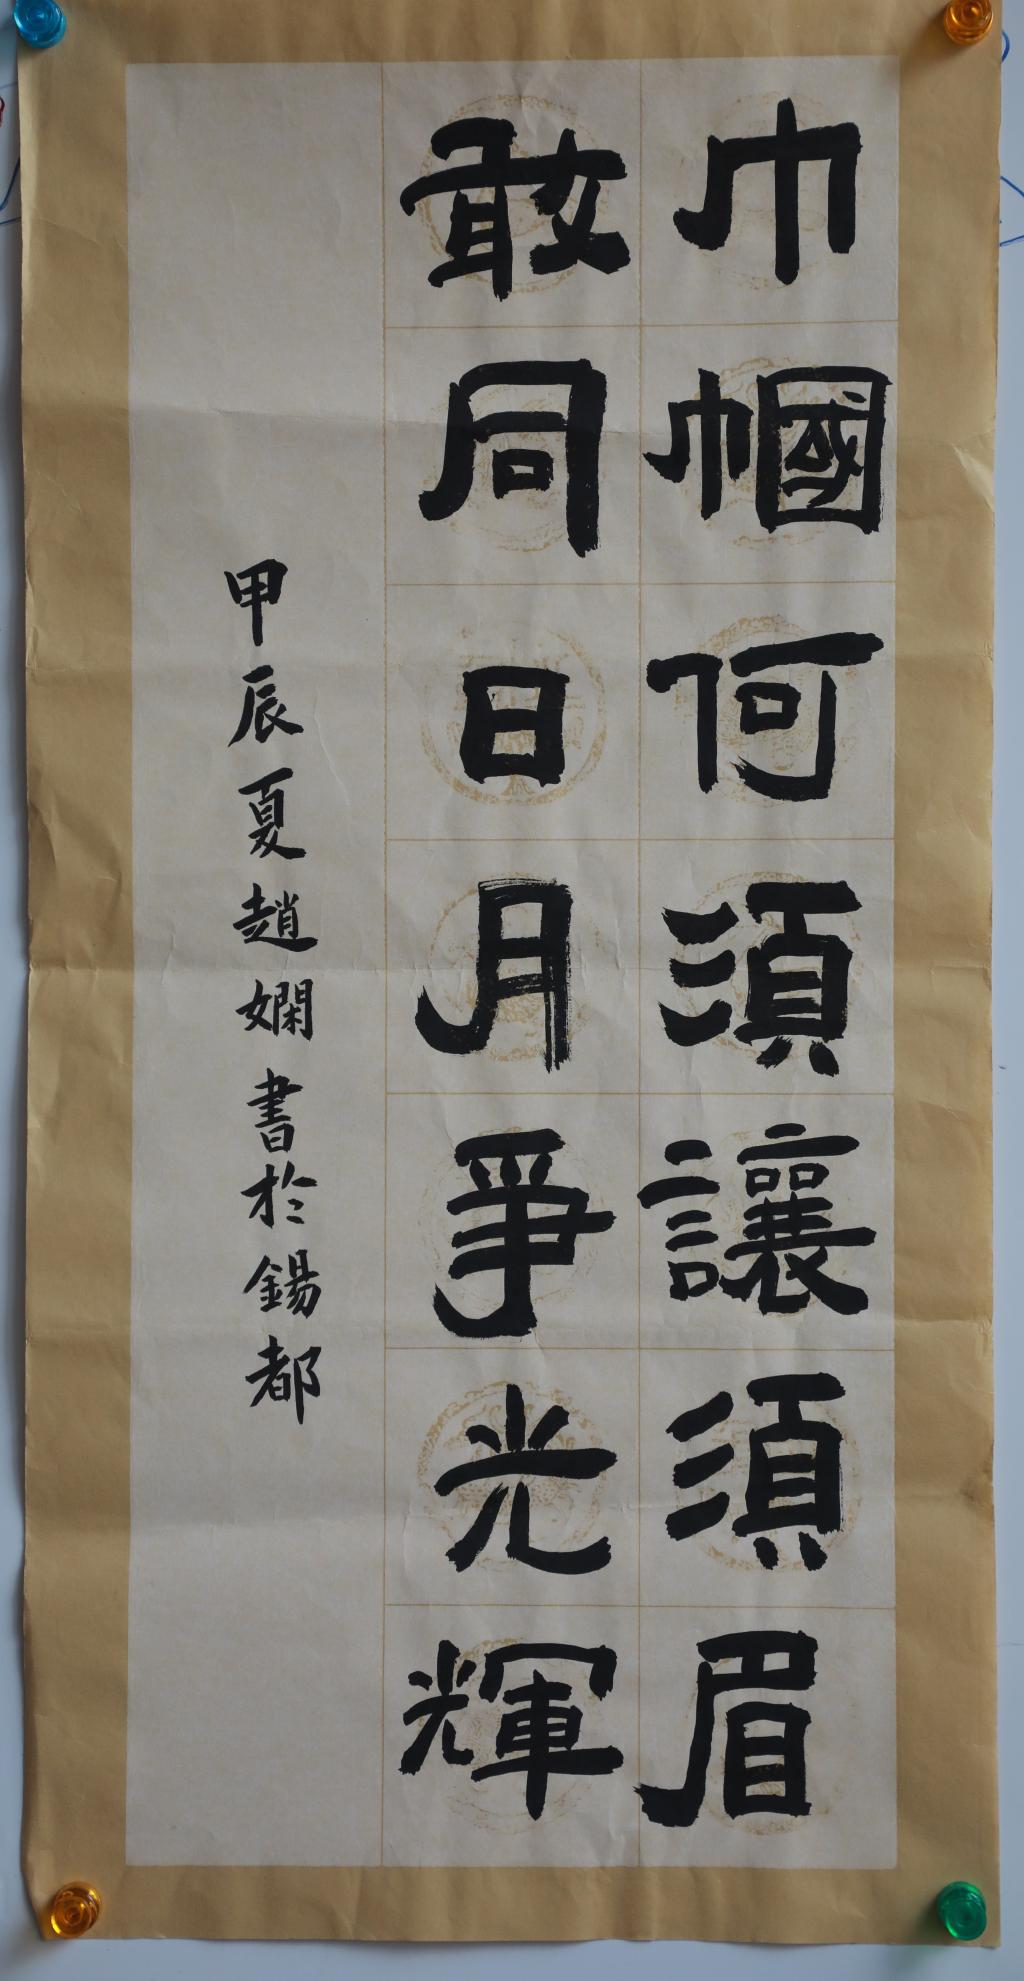 巾幗何須讓須眉
敢同日月爭光輝
甲辰夏趙嫻書於錫都